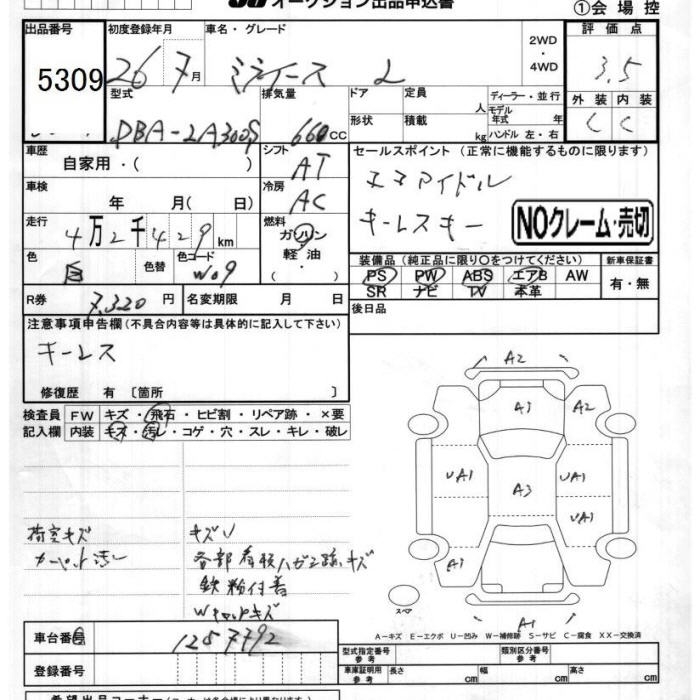 オークション出品申込書 ①会場控
出品番号 初度登録年月 車名・グレード 2WD・4WD 評価点
5309 26 7月 ミライース L 3.5
型式 排気量 ドア 定員 人 ディーラー・並行 外装 内装
DBA-LA300S 660cc 形状 積載 kg モデル年式 年 ハンドル 左・右 C C
車歴 自家用・( ) シフト AT セールスポイント (正常に機能するものに限ります)
車検 年 月( 日) 冷房 AC エコアイドル
走行 4万2千429km 燃料 ガソリン・軽油・( ) キーレスキー NOクレーム・売切
色 白 色替 色コード W09 装備品(純正品に限り○をつけてください) 新車保証書
PS PW ABS エアB AW 有・無
SR ナビ TV 本革
R券 7,320円 名変期限 月 日 後日品
注意事項申告欄(不具合内容等は具体的に記入して下さい)
キーレス
修復歴 有 〔箇所 〕
検査員 FW キズ・飛石・ヒビ割・リペア跡・×要
記入欄 内装 キズ・汚レ・コゲ・穴・スレ・キレ・破レ
A2
A3 A2
UA1 A3 UA1
UA1
A3
A1
スペア
荷室キズ キズU
カーペット汚レ 各部看板ハガシ跡、キズ
鉄粉付着
A-キズ E-エクボ U-凹み W-補修跡 S-サビ C-腐食 XX-交換済
車台番号 1257792 型式指定番号 参考 類別区分番号 参考
登録番号 車庫証明用 参考 長さ cm 幅 cm 高さ cm
希望出品コーナー